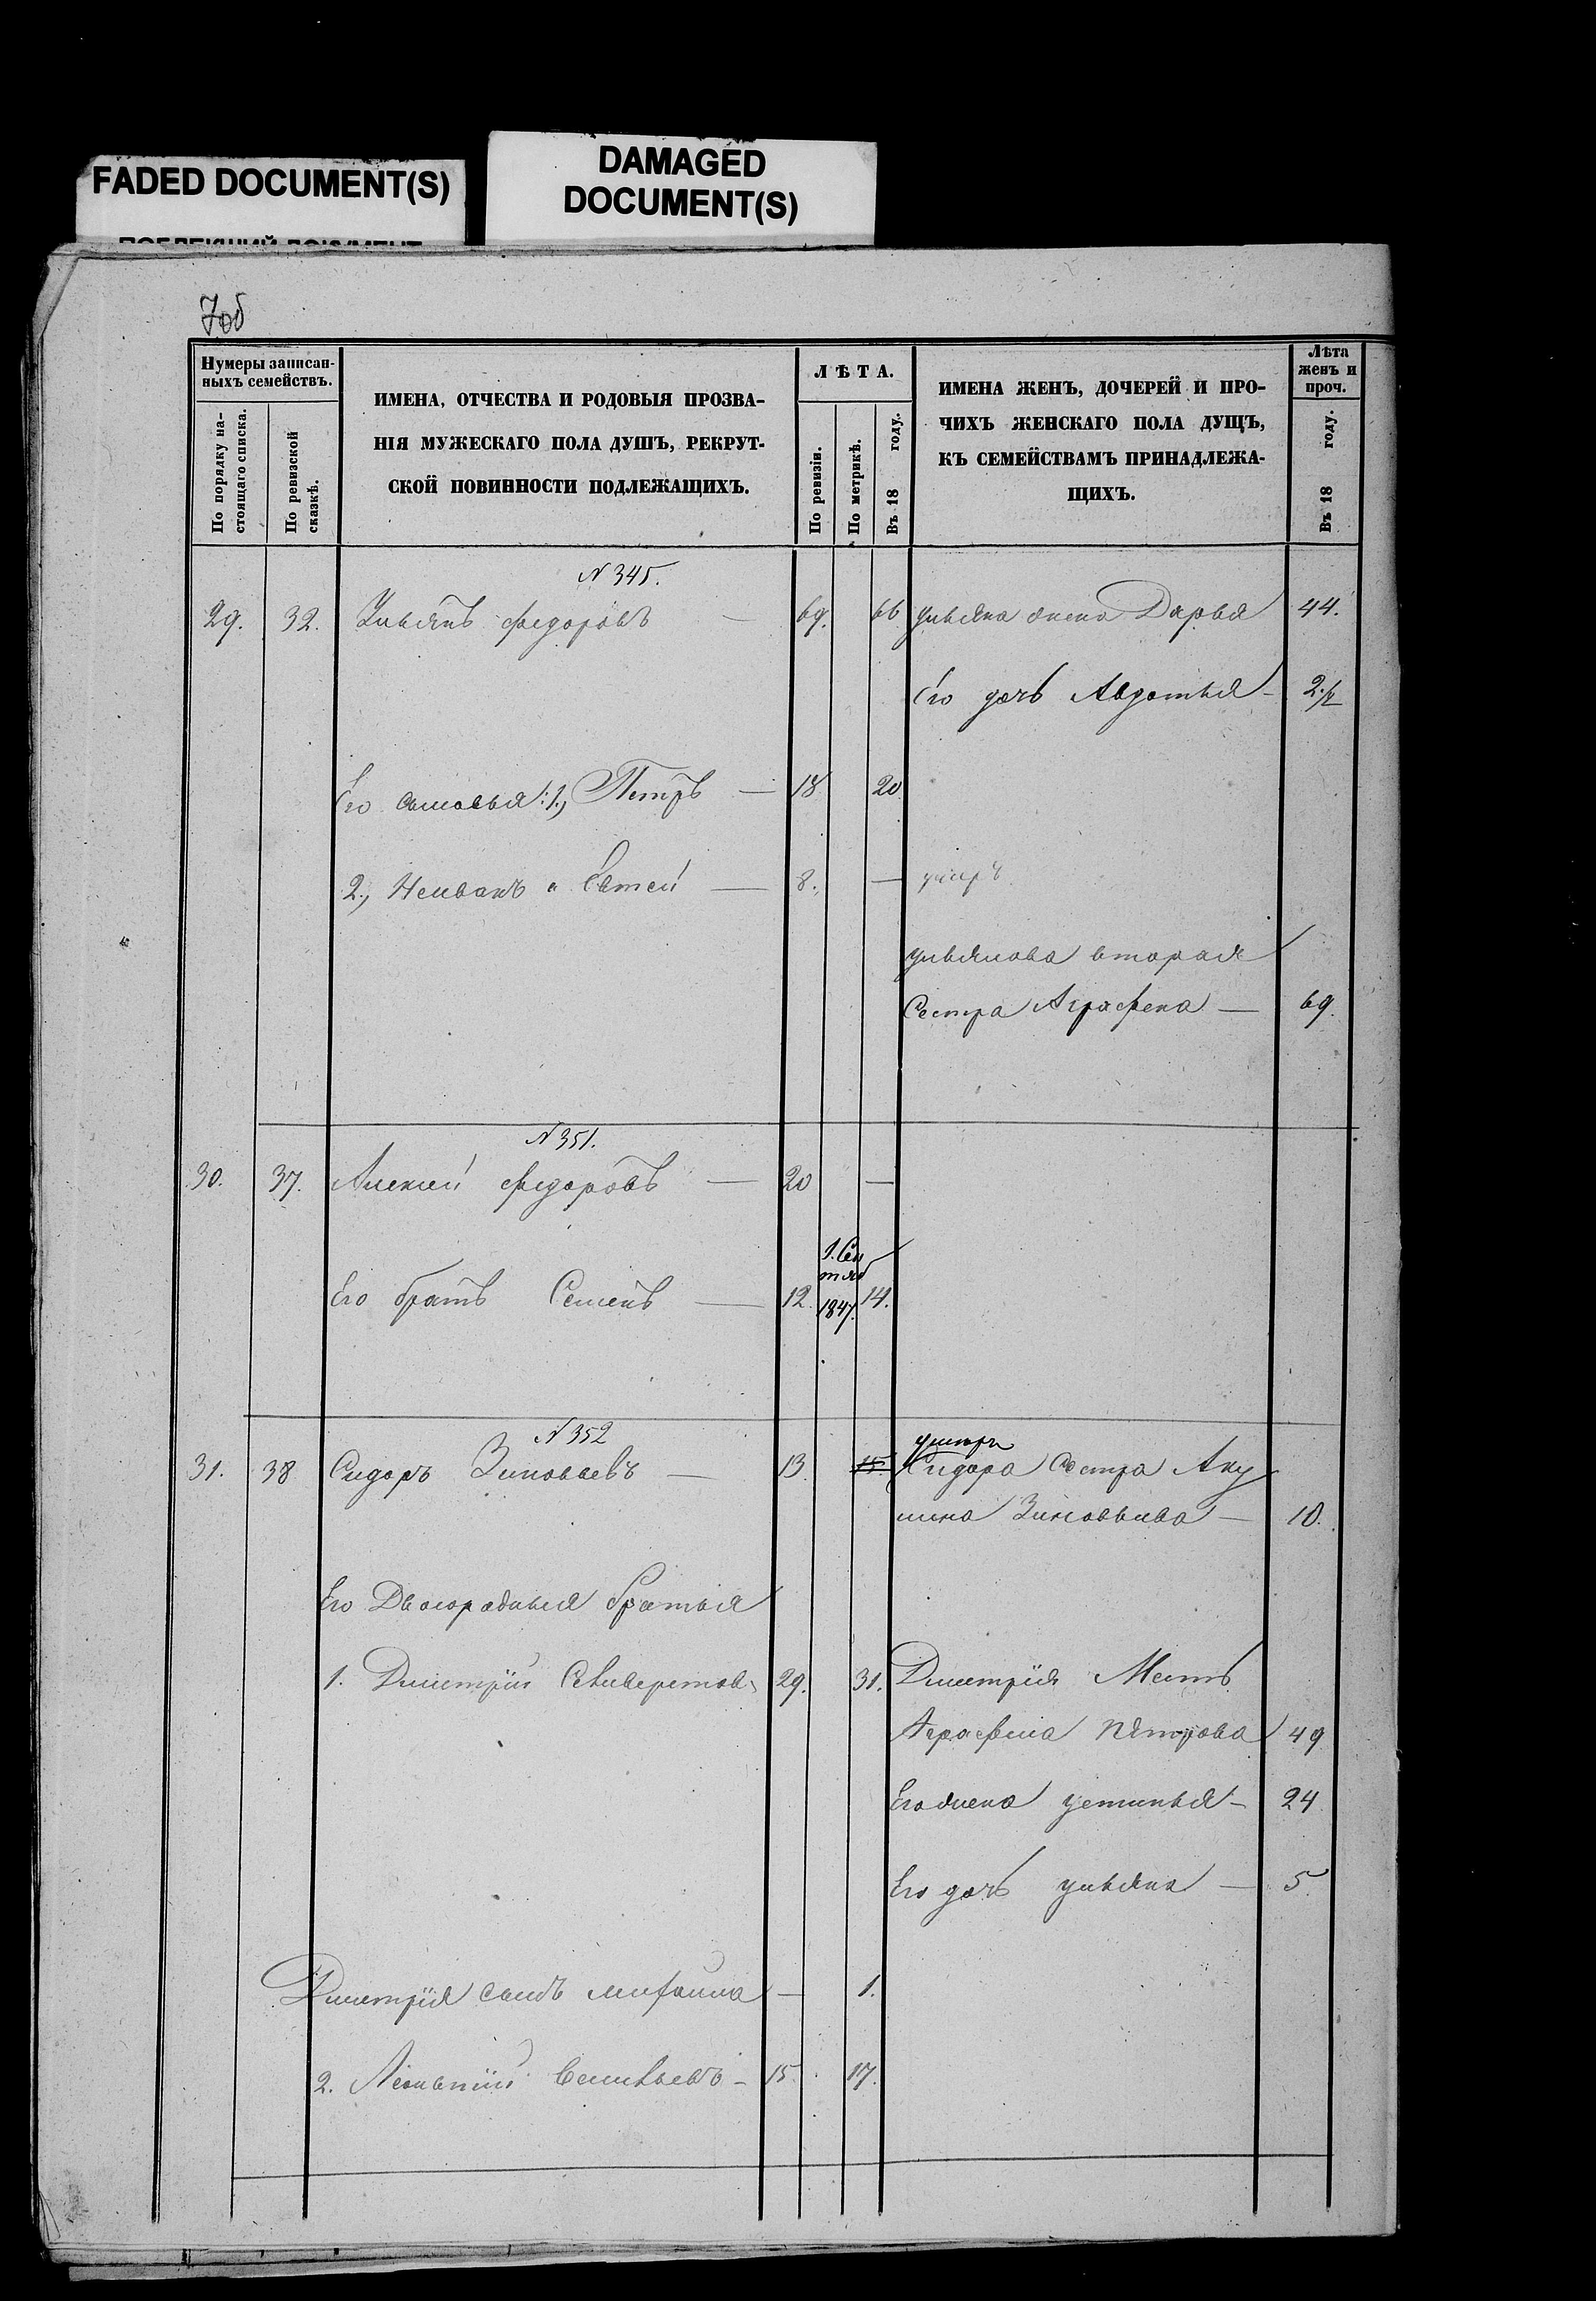 FADED DOCUMENT(S)
DAMAGED
DOCUMENT(S)
7об
Нумеры записан-
ныхъ семействъ.
По порядку на-
стоящаго списка.
По ревизской
сказкѣ.
ИМЕНА, ОТЧЕСТВА И РОДОВЫЯ ПРОЗВА-
НІЯ МУЖЕСКАГО ПОЛА ДУШЪ, РЕКРУТ-
СКОЙ ПОВИННОСТИ ПОДЛЕЖАЩИХЪ.
ЛѢТА.
По ревизіи.
По метрикѣ.
Въ 18 году.
ИМЕНА ЖЕНЪ, ДОЧЕРЕЙ И ПРО-
ЧИХЪ ЖЕНСКАГО ПОЛА ДУЩЪ,
КЪ СЕМЕЙСТВАМЪ ПРИНАДЛЕЖА-
ЩИХЪ.
Лѣта
женъ и
проч.
Въ 18 году.
N 345.
29. 32. Ульянъ Федоровъ — 69. 66 Ульяна жена Дарья 44.
Его дочь Авдотья — 2.
Его сыновья: 1, Петръ — 18 20
2, — 8. — умеръ
Ульянова вторая
Сестра Аграфена — 69.
N 351.
30. 37. Алексей Федоровъ — 20 —
Его братъ Семенъ — 12. 1. Сен
тяб
1847. 14.
N 352
31. 38 Сидоръ Зиновьевъ — 13. 15. умеръ
Сидора Сестра Аку
лина Зиновьева — 10.
Его Двоюродныя братья
1. Дмитрій Селиверстов 29. 31. Дмитрія Мать
Аграфена Петрова 49
Его жена Устинья — 24
Его дочь Ульяна — 5.
Дмитрія сынъ Михайла — 1.
2. Леонтій — 15. 17.